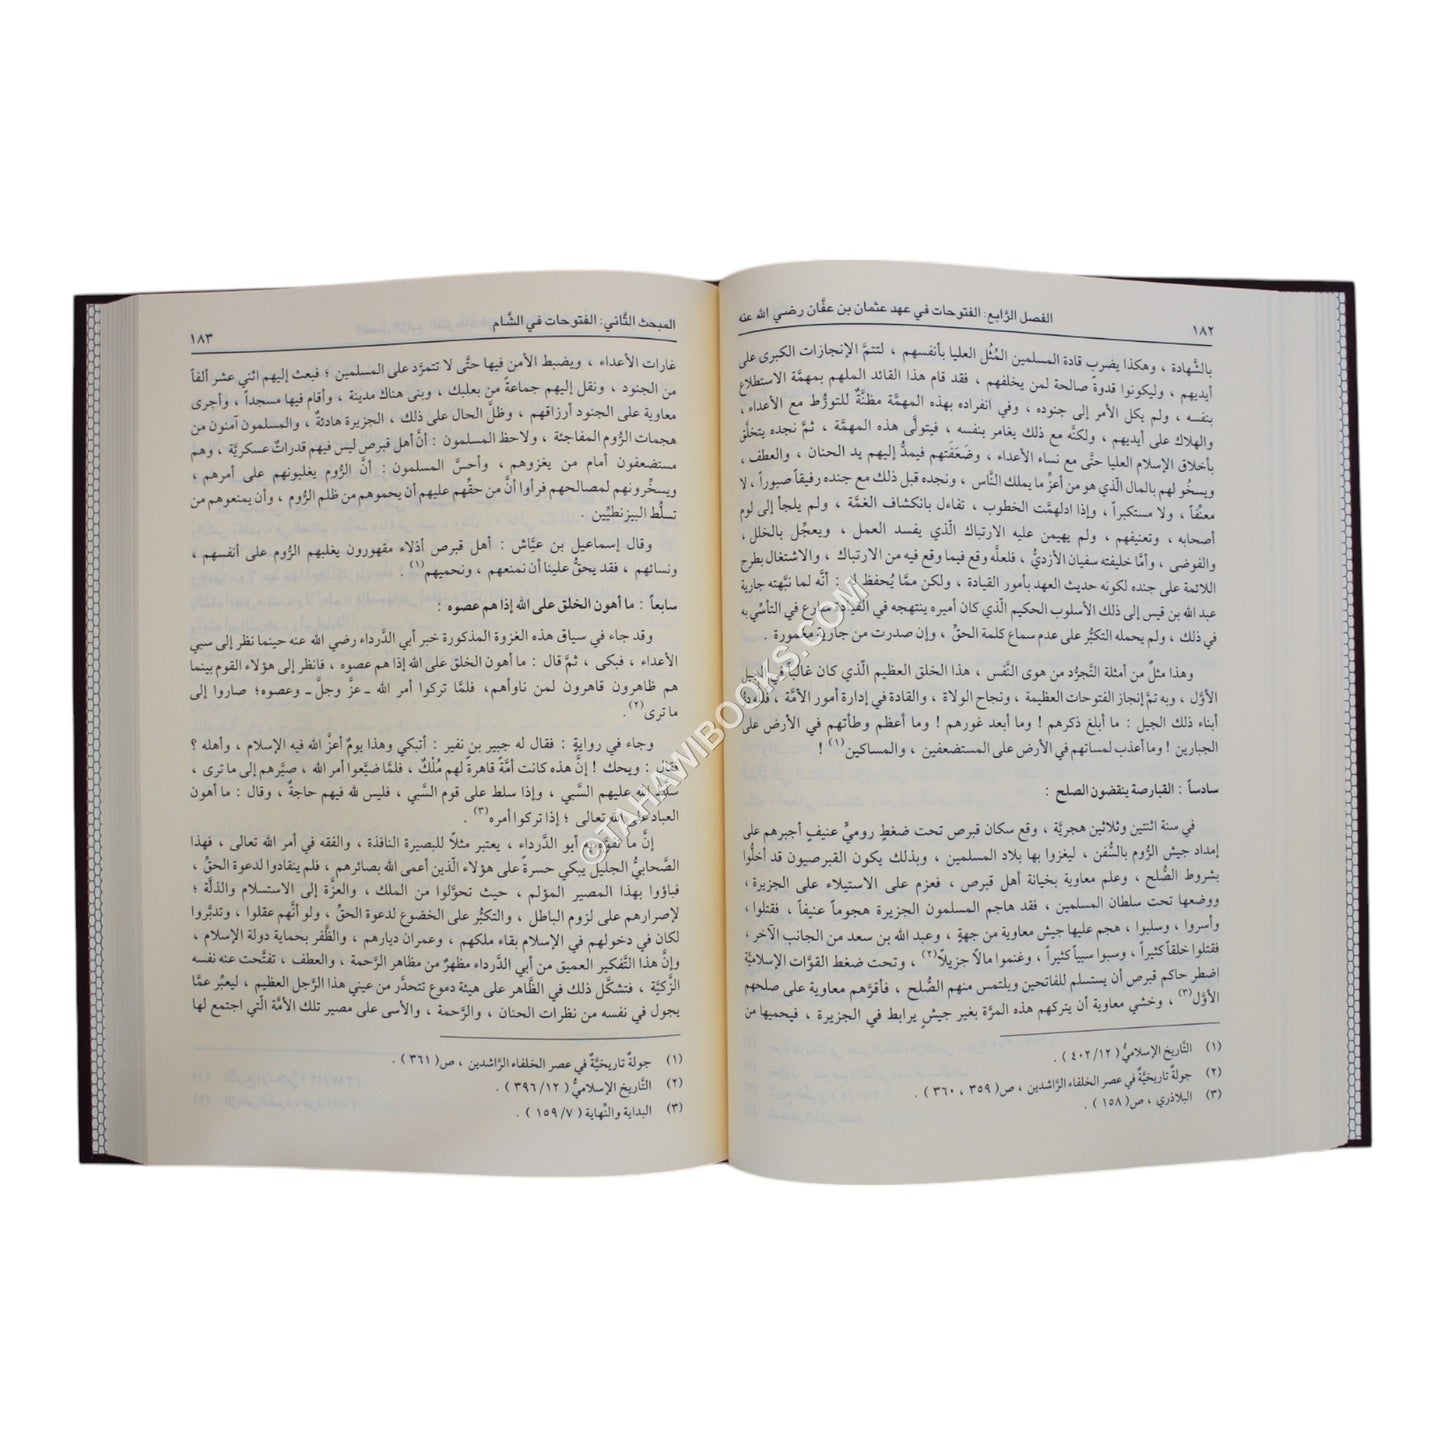 ١٨٢
الفصل الرَّابع: الفتوحات في عهد عثمان بن عفَّان رضي الله عنه
بالشَّهادة ، وهكذا يضرب قادة المسلمين المُثُل العليا بأنفسهم ، لتتمَّ الإنجازات الكبرى على
أيديهم ، وليكونوا قدوةً صالحة لمن يخلفهم ، فقد قام هذا القائد الملهم بمهمَّة الاستطلاع
بنفسه ، ولم يكل الأمر إلى جنوده ، وفي انفراده بهذه المهمَّة مظنَّةٌ للتورُّط مع الأعداء ،
والهلاك على أيديهم ، ولكنَّه مع ذلك يغامر بنفسه ، فيتولَّى هذه المهمَّة ، ثمَّ نجده يتخلَّق
بأخلاق الإسلام العليا حتَّى مع نساء الأعداء ، وضَعَفَتهم فيمدُّ إليهم يد الحنان ، والعطف ،
ويسخُو لهم بالمال الَّذي هو من أعزِّ ما يملك النَّاس ، ونجده قبل ذلك مع جنده رفيقاً صبوراً ، لا
معنِّفاً ، ولا مستكبراً ، وإذا ادلهمَّت الخطوب ، تفاءل بانكشاف الغمَّة ، ولم يلجأ إلى لوم
أصحابه ، وتعنيفهم ، ولم يهيمن عليه الارتباك الَّذي يفسد العمل ، ويعجِّل بالخلل ،
والفوضى ، وأمَّا خليفته سفيان الأزديُّ ، فلعلَّه وقع فيما وقع فيه من الارتباك ، والاشتغال بطرح
اللائمة على جنده لكونه حديث العهد بأمور القيادة ، ولكن ممَّا يُحفظ له : أنَّه لما نبَّهته جارية
عبد الله بن قيس إلى ذلك الأسلوب الحكيم الَّذي كان أميره ينتهجه في القيادة سارع في التأسِّي به
في ذلك ، ولم يحمله التكبُّر على عدم سماع كلمة الحقِّ ، وإن صدرت من جاريةٍ مغمورة .
وهذا مثلٌ من أمثلة التَّجرُّد من هوى النَّفس ، هذا الخلق العظيم الَّذي كان غالباً في الجيل
الأوَّل ، وبه تمَّ إنجاز الفتوحات العظيمة ، ونجاح الولاة ، والقادة في إدارة أمور الأمَّة ، فلله درُّ
أبناء ذلك الجيل : ما أبلغ ذكرهم ! وما أبعد غورهم ! وما أعظم وطأتهم في الأرض على
الجبارين ! وما أعذب لمساتهم في الأرض على المستضعفين ، والمساكين(١) !
سادساً : القبارصة ينقضون الصلح :
في سنة اثنتين وثلاثين هجريَّة ، وقع سكان قبرص تحت ضغطٍ روميٍّ عنيفٍ أجبرهم على
إمداد جيش الرُّوم بالسُّفن ، ليغزوا بها بلاد المسلمين ، وبذلك يكون القبرصيون قد أخلُّوا
بشروط الصُّلح ، وعلم معاوية بخيانة أهل قبرص ، فعزم على الاستيلاء على الجزيرة ،
ووضعها تحت سلطان المسلمين ، فقد هاجم المسلمون الجزيرة هجوماً عنيفاً ، فقتلوا ،
وأسروا ، وسلبوا ، هجم عليها جيش معاوية من جهةٍ ، وعبد الله بن سعد من الجانب الآخر ،
فقتلوا خلقاً كثيراً ، وسبوا سبياً كثيراً ، وغنموا مالاً جزيلاً(٢) ، وتحت ضغط القوَّات الإسلاميَّة
اضطر حاكم قبرص أن يستسلم للفاتحين ويلتمس منهم الصُّلح ، فأقرَّهم معاوية على صلحهم
الأوَّل(٣) ، وخشي معاوية أن يتركهم هذه المرَّة بغير جيشٍ يرابط في الجزيرة ، فيحميها من
(١) التَّاريخ الإسلاميُّ ( ٤٠٢/١٢ ) .
(٢) جولةٌ تاريخيَّةٌ في عصر الخلفاء الرَّاشدين ، ص( ٣٥٩ ، ٣٦٠ ) .
(٣) البلاذري ، ص( ١٥٨ ) .
المبحث الثَّاني: الفتوحات في الشَّام
١٨٣
غارات الأعداء ، ويضبط الأمن فيها حتَّى لا تتمرَّد على المسلمين ؛ فبعث إليهم اثني عشر ألفاً
من الجنود ، ونقل إليهم جماعةً من بعلبك ، وبنى هناك مدينة ، وأقام فيها مسجداً ، وأجرى
معاوية على الجنود أرزاقهم ، وظلَّ الحال على ذلك ، الجزيرة هادئةٌ ، والمسلمون آمنون من
هجمات الرُّوم المفاجئة ، ولاحظ المسلمون : أنَّ أهل قبرص ليس فيهم قدراتٌ عسكريَّة ، وهم
مستضعفون أمام من يغزوهم ، وأحسَّ المسلمون : أنَّ الرُّوم يغلبونهم على أمرهم ،
ويسخِّرونهم لمصالحهم فرأوا أنَّ من حقِّهم عليهم أن يحموهم من ظلم الرُّوم ، وأن يمنعوهم من
تسلُّط البيزنطيِّين .
وقال إسماعيل بن عيَّاش : أهل قبرص أذلاء مقهورون يغلبهم الرُّوم على أنفسهم ،
ونسائهم ، فقد يحقُّ علينا أن نمنعهم ، ونحميهم(١) .
سابعاً : ما أهون الخلق على الله إذا هم عصوه :
وقد جاء في سياق هذه الغزوة المذكورة خبر أبي الدَّرداء رضي الله عنه حينما نظر إلى سبي
الأعداء ، فبكى ، ثمَّ قال : ما أهون الخلق على الله إذا هم عصوه ، فانظر إلى هؤلاء القوم بينما
هم ظاهرون قاهرون لمن ناوأهم، فلمَّا تركوا أمر الله ـ عزَّ وجلَّ ـ وعصوه؛ صاروا إلى
ما ترى(٢) .
وجاء في روايةٍ : فقال له جبير بن نفير : أتبكي وهذا يومٌ أعزَّ الله فيه الإسلام ، وأهله ؟
فقال : ويحك ! إنَّ هذه كانت أمَّةً قاهرةً لهم مُلْكٌ ، فلمَّا ضيَّعوا أمر الله ، صيَّرهم إلى ما ترى ،
سلَّط الله عليهم السَّبي ، وإذا سلط على قوم السَّبي ، فليس لله فيهم حاجةٌ ، وقال : ما أهون
العباد على الله تعالى ؛ إذا تركوا أمره(٣) .
إنَّ ما تفوَّه به أبو الدَّرداء ، يعتبر مثلاً للبصيرة النافذة ، والفقه في أمر الله تعالى ، فهذا
الصَّحابيُّ الجليل يبكي حسرةً على هؤلاء الَّذين أعمى الله بصائرهم ، فلم ينقادوا لدعوة الحقِّ ،
فباؤوا بهذا المصير المؤلم ، حيث تحوَّلوا من الملك ، والعزَّة إلى الاستسلام والذلَّة ؛
لإصرارهم على لزوم الباطل ، والتكبُّر على الخضوع لدعوة الحقِّ ، ولو أنَّهم عقلوا ، وتدبَّروا
لكان في دخولهم في الإسلام بقاء ملكهم ، وعمران ديارهم ، والظَّفر بحماية دولة الإسلام ،
وإنَّ هذا التَّفكير العميق من أبي الدَّرداء مظهرٌ من مظاهر الرَّحمة ، والعطف ، تفتَّحت عنه نفسه
الزَّكيَّة ، فتشكَّل ذلك في الظَّاهر على هيئة دموع تتحدَّر من عيني هذا الرَّجل العظيم ، ليعبِّر عمَّا
يجول في نفسه من نظرات الحنان ، والرَّحمة ، والأسى على مصير تلك الأمَّة الَّتي اجتمع لها
(١) جولةٌ تاريخيَّةٌ في عصر الخلفاء الرَّاشدين ، ص( ٣٦١ ) .
(٢) التَّاريخ الإسلاميُّ ( ٣٩٦/١٢ ) .
(٣) البداية والنِّهاية ( ١٥٩/٧ ) .
©TAHAWIBOOKS.COM